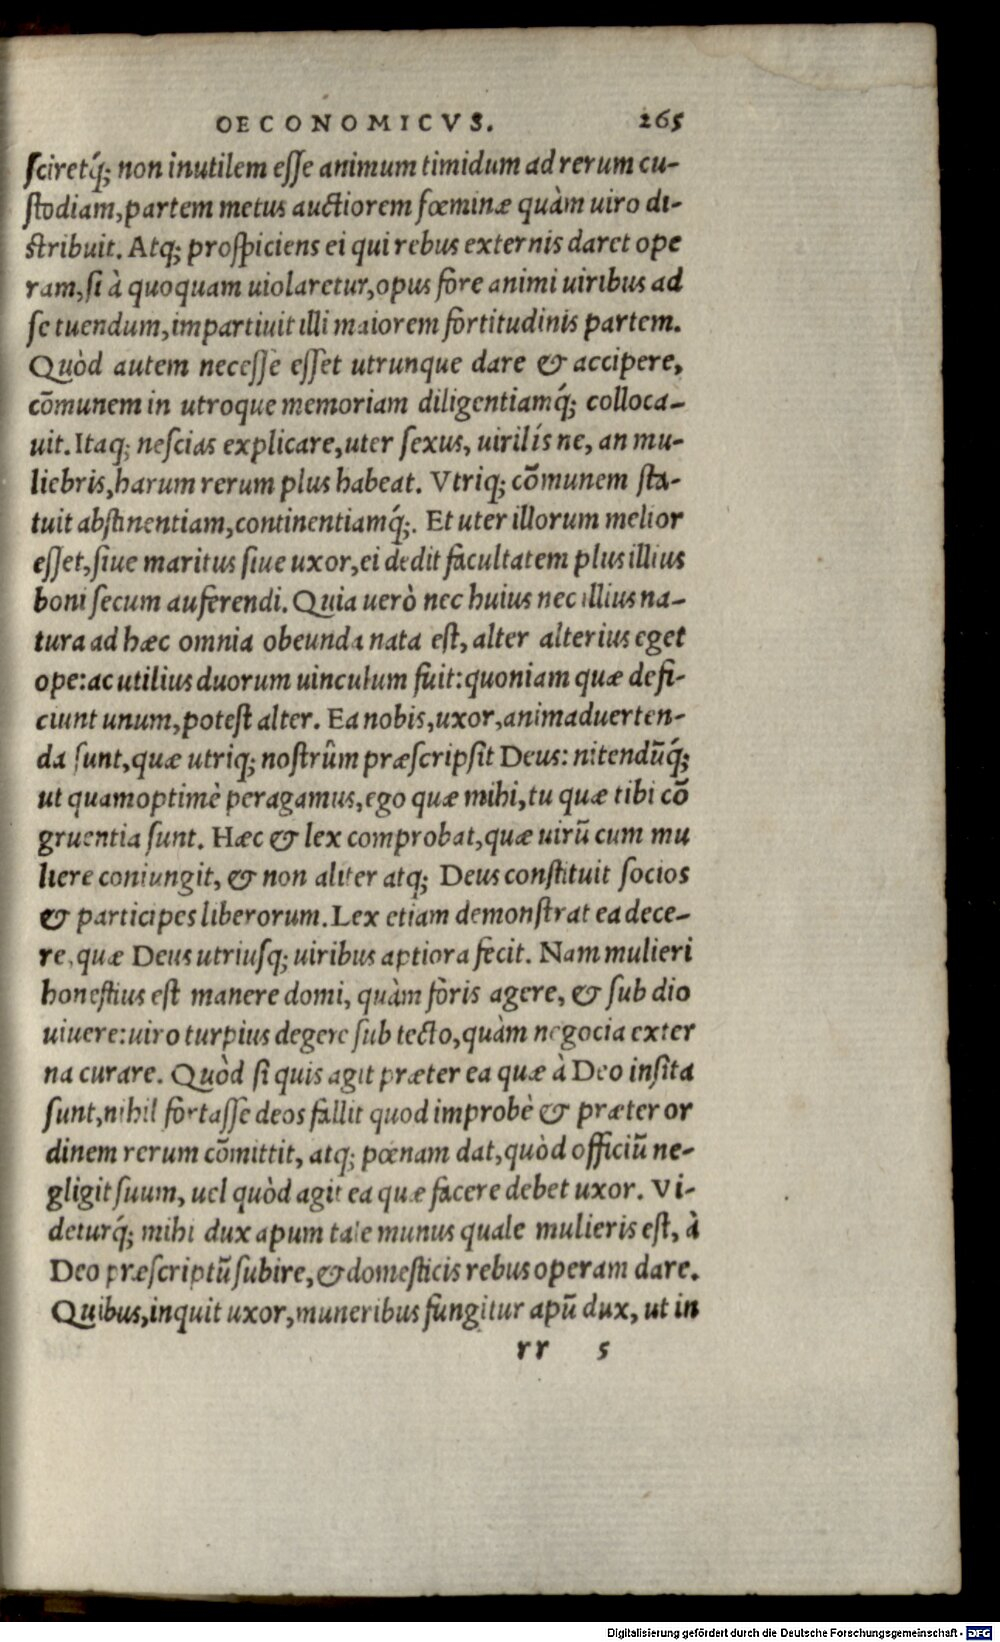 OECONOMICVS. 265
sciretq́; non inutilem esse animum timidum ad rerum cu-
stodiam, partem metus auctiorem fœminæ quàm uiro di-
stribuit. Atq; prospiciens ei qui rebus externis daret ope
ram, si à quoquam uiolaretur, opus fore animi uiribus ad
se tuendum, impartiuit illi maiorem fortitudinis partem.
Quòd autem necesse esset utrunque dare & accipere,
cõmunem in utroque memoriam diligentiamq́; colloca-
uit. Itaq; nescias explicare, uter sexus, uirilís ne, an mu-
liebris, harum rerum plus habeat. Vtriq; cõmunem sta-
tuit abstinentiam, continentiamq́;. Et uter illorum melior
esset, siue maritus siue uxor, ei dedit facultatem plus illius
boni secum auferendi. Quia uerò nec huius nec illius na-
tura ad hæc omnia obeunda nata est, alter alterius eget
ope: ac utilius duorum uinculum fuit: quoniam quæ defi-
ciunt unum, potest alter. Ea nobis, uxor, animaduerten-
da sunt, quæ utriq; nostrûm præscripsit Deus: nitendũq́;
ut quamoptimè peragamus, ego quæ mihi, tu quæ tibi cõ
gruentia sunt. Hæc & lex comprobat, quæ uirũ cum mu
liere coniungit, & non aliter atq; Deus constituit socios
& participes liberorum. Lex etiam demonstrat ea dece-
re, quæ Deus utriusq; uiribus aptiora fecit. Nam mulieri
honestius est manere domi, quàm foris agere, & sub dio
uiuere: uiro turpius degere sub tecto, quàm negocia exter
na curare. Quòd si quis agit præter ea quæ à Deo insita
sunt, nihil fortasse deos fallit quod improbè & præter or
dinem rerum cõmittit, atq; pœnam dat, quòd officiũ ne-
gligit suum, uel quòd agit ea quæ facere debet uxor. Vi-
deturq́; mihi dux apum tale munus quale mulieris est, à
Deo præscriptũ subire, & domesticis rebus operam dare.
Quibus, inquit uxor, muneribus fungitur apũ dux, ut in
rr 5
Digitalisierung gefördert durch die Deutsche Forschungsgemeinschaft - DFG